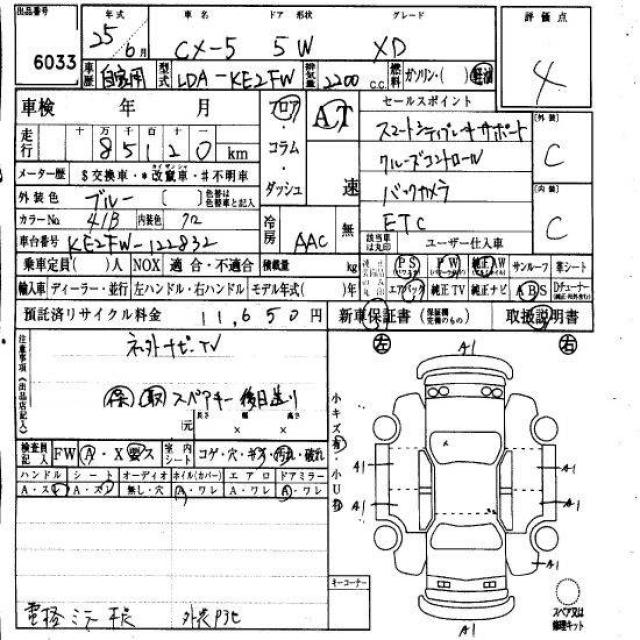 出品番号 年式 車名 ドア 形状 グレード 評価点
6033 25 6月 CX-5 5W XD 4
車歴 自家用 型式 LDA-KE2FW 排気量 2200 c.c. 燃料 ガソリン・( ) 軽油
車検 年 月 フロア・コラム・ダッシュ AT 速 セールスポイント
走行 十 万 千 百 十 一 85120 km
スマートシティブレーキサポート [外装] C
メーター歴 $交換車・*改竄車・#不明車 クルーズコントロール
外装色 ブルー [ ] 色替は色替車と記入 バックカメラ [内装] C
カラーNo 41B 内装色 クロ 冷房 AAC 無 ETC
車台番号 KE2FW-122832 該当車は丸印 ユーザー仕入車
乗車定員( )人 NOX 適合・不適合 積載量 kg PS PW 純正AW サンルーフ 革シート
輸入車 ディーラー・並行 左ハンドル・右ハンドル モデル年式( )年 エアバック 純正TV 純正ナビ ABS Dチューナー
預託済リサイクル料金 11,650円 新車保証書 取扱説明書
注意事項(出品店記入) 左 A1 右
社外ナビ・TV
保 取 スペアキー 後日送り
元 長さ × 幅 × 高さ
検査員記入 FW A・X 要ス 室内シート コゲ・穴・キズ・汚れ・破れ
小キズ有・小U有
ハンドル シート オーディオ ホイル(カバー) エアロ ドアミラー
A・スレ A・スレ 無し・穴 A・ワレ A・ワレ A・ワレ
A1 A1
A1 A1
A1
キーコーナー
電格ミラー 外装
A1
スペア又は修理キット